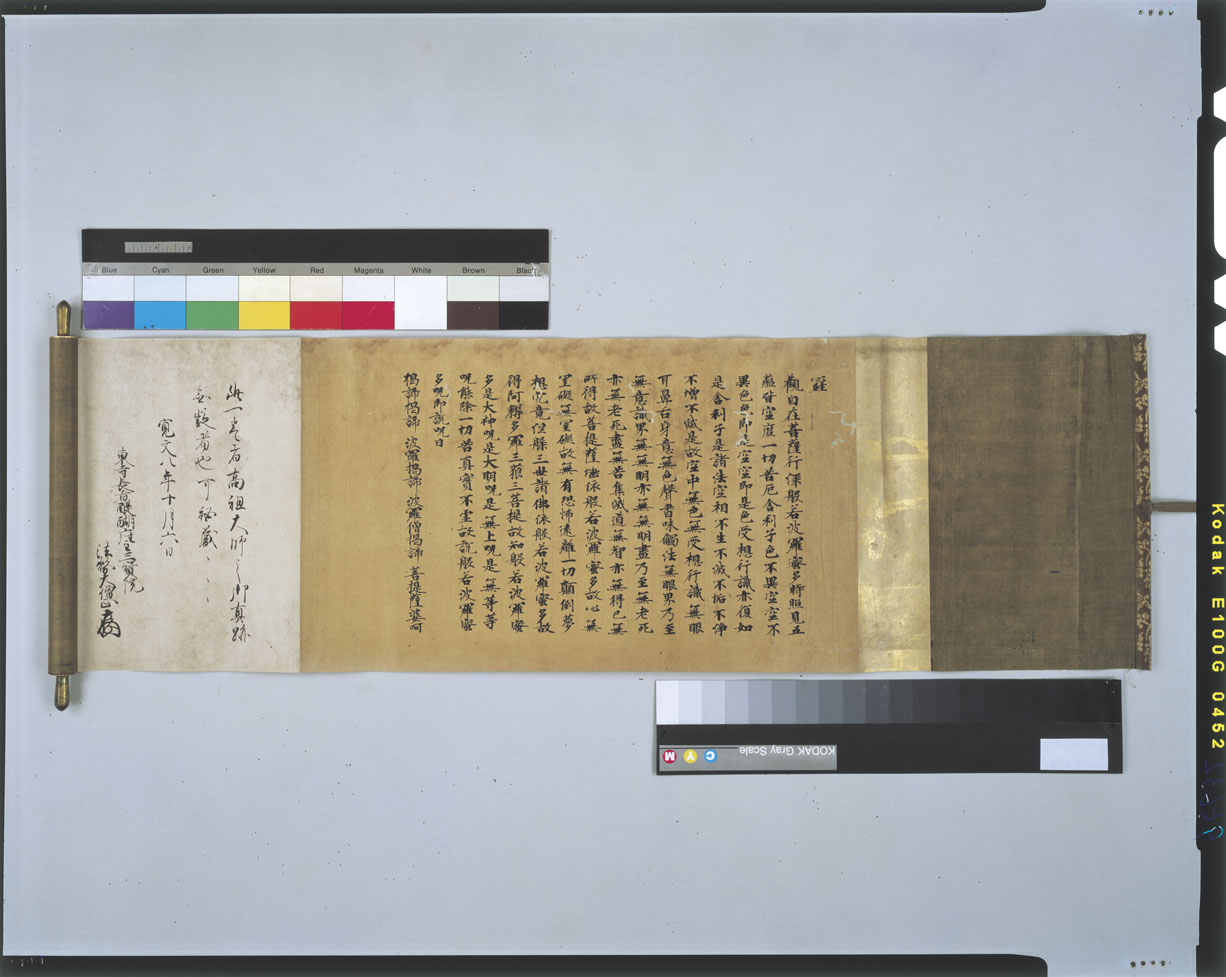 Blue Cyan Green Yellow Red Magenta White Brown Black
觀自在菩薩行深般若波羅蜜多時照見五
蘊皆空度一切苦厄舍利子色不異空空不
異色色即是空空即是色受想行識亦復如
是舍利子是諸法空相不生不滅不垢不淨
不增不減是故空中無色無受想行識無眼
耳鼻舌身意無色聲香味觸法無眼界乃至
無意識界無無明亦無無明盡乃至無老死
亦無老死盡無苦集滅道無智亦無得已無
所得故菩提薩埵依般若波羅蜜多故心無
罣礙無罣礙故無有恐怖遠離一切顛倒夢
想究竟涅槃三世諸佛依般若波羅蜜多故
得阿耨多羅三藐三菩提故知般若波羅蜜
多是大神呪是大明呪是無上呪是無等等
呪能除一切苦真實不虛故說般若波羅蜜
多呪即說呪曰
揭諦揭諦 波羅揭諦 波羅僧揭諦 菩提薩婆訶
此一卷者高祖大師之御真跡
無疑者也可秘藏〻〻
寛文八年十月六日
東寺長者醍醐座主三寶院
法務大僧正
KODAK Gray Scale
C Y M
Kodak E100G 0452